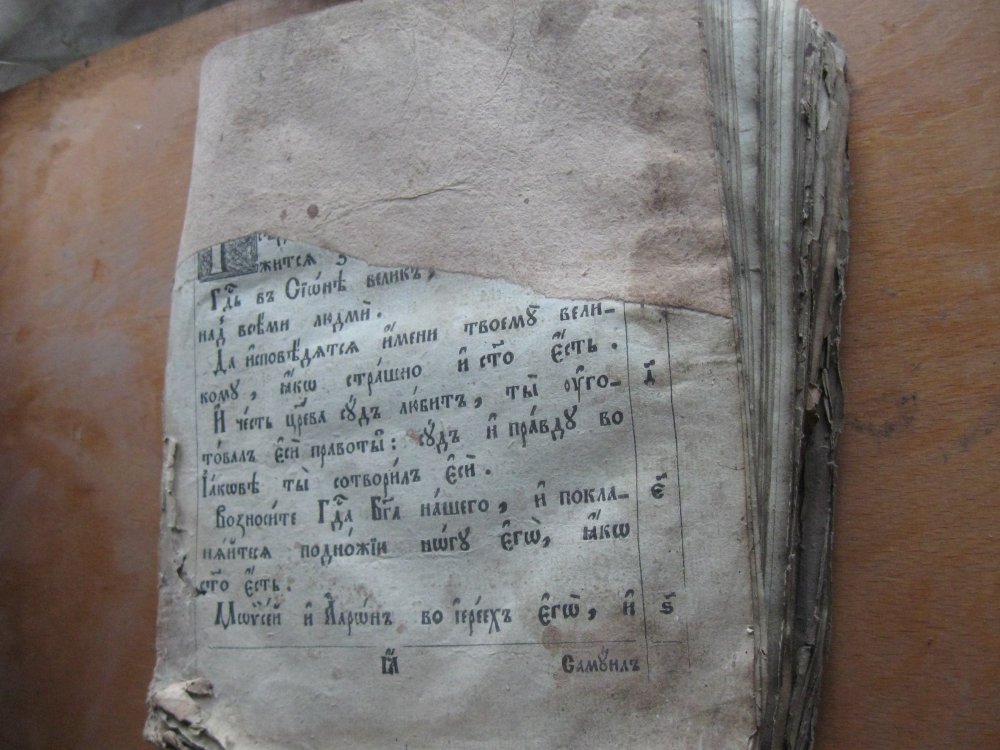 жится
Гдⷭ҇ь въ Сїѡ́нѣ велик̾,
над̾ всѣми людмѝ.
Да и҆сповѣ́дятся и҆́мени твоемꙋ̀ вели-
комꙋ, ꙗ҆́кѡ стра́шно и҆ ст҃о є҆́сть.
И҆ че́сть цр҃е́ва сꙋ́дъ лю́битъ, ты̀ оу҆гото-
то́валъ є҆сѝ правоты̑: сꙋ́дъ и҆ пра́вдꙋ во
І҆а́кѡвѣ ты̀ сотвори́лъ є҆сѝ.
Возноси́те Гдⷭ҇а Бг҃а на́шего, и҆ покла-
нѧ́йтєся подно́жїи но́гꙋ є҆гѡ̀, ꙗ҆́кѡ
ст҃о є҆́сть.
Мѡѷсе́й и҆ А҆арѡ́нъ во і҆ере́ехъ є҆гѡ̀, и҆
д҃
є҃
ѕ҃
Самꙋи́лъ